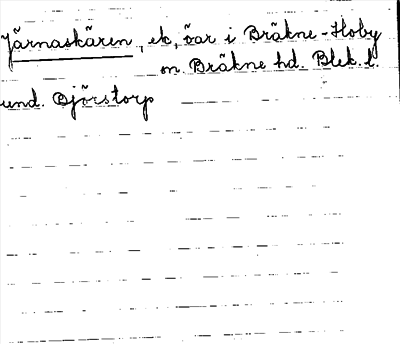 Järnaskären, ek, öar i Bräkne-Hoby
sn Bräkne hd. Blek. l.
und. Björstorp